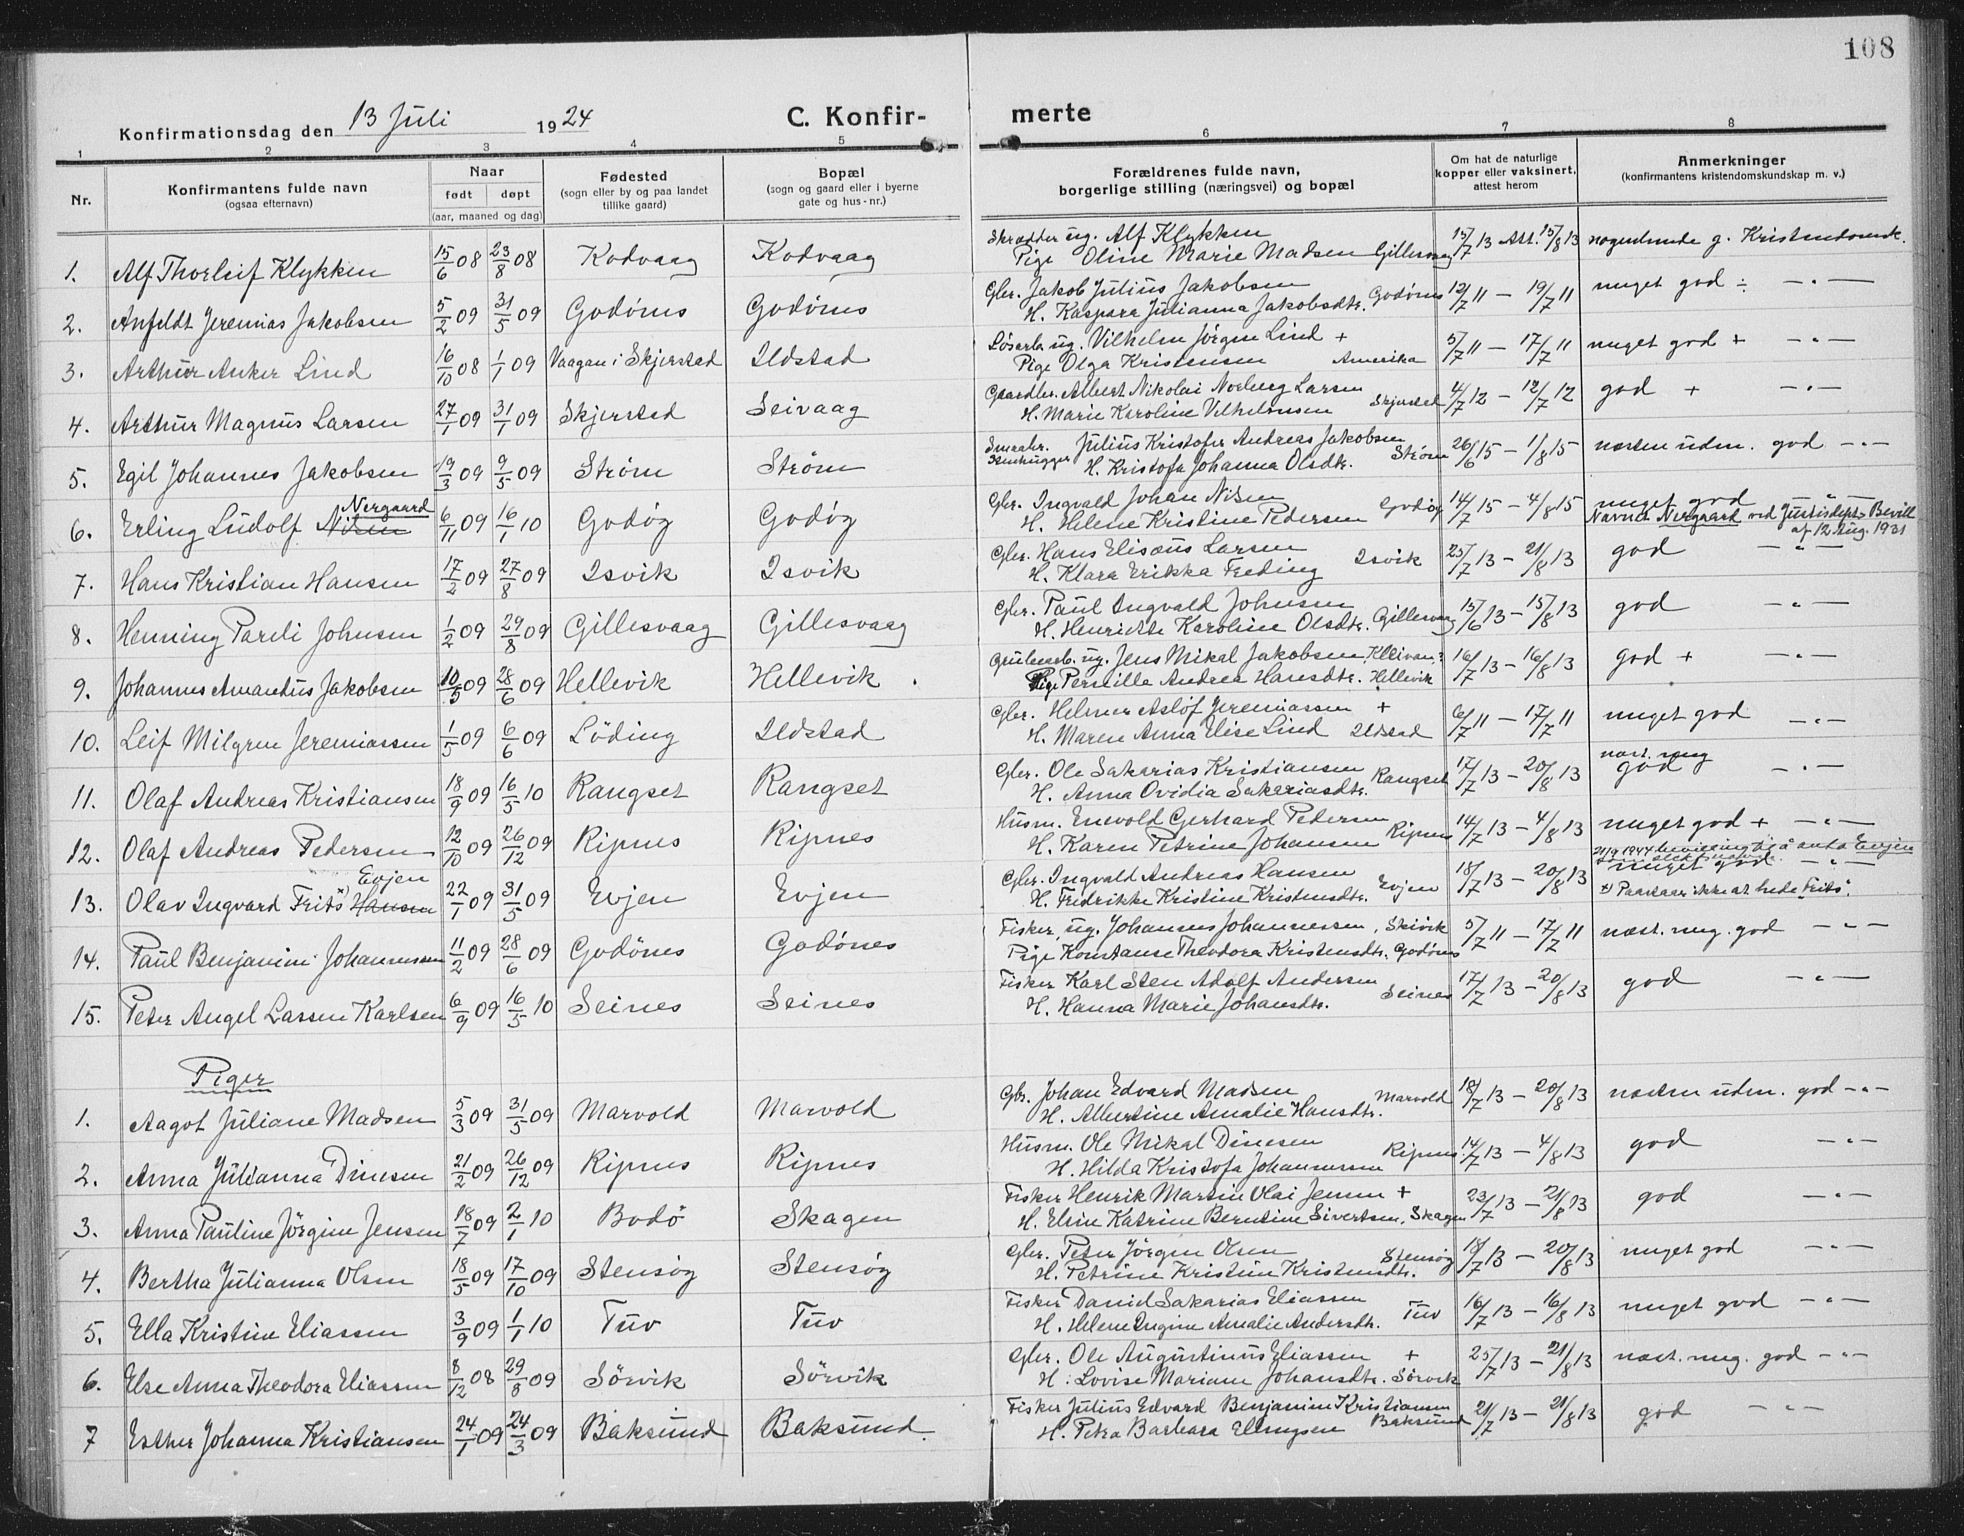 108
Konfirmationsdag den 13 Juli 1924
C. Konfir-
merte
1 2 3 4 5 6 7 8
Nr.
Konfirmantens fulde navn
(ogsaa efternavn)
Naar
født døpt
(aar, maaned og dag)
Fødested
(sogn eller by og paa landet
tillike gaard)
Bopæl
(sogn og gaard eller i byerne
gate og hus-nr.)
Forældrenes fulde navn,
borgerlige stilling (næringsvei) og bopæl
Om hat de naturlige
kopper eller vaksinert,
attest herom
Anmerkninger
(konfirmantens kristendomskundskap m. v.)
1. Alf Thorleif Klykken 15/6 08 23/8 08 Kodvaag Kodvaag
Skrædder ug. Alf Klykken
Pige Oline Marie Madsen Gillesvaag 15/7 13 Att. 15/8 13 nogenlunde g. Kristendomsk.
2. Anfeldt Jeremias Jakobsen 5/2 09 31/5 09 Godönes Godönes
Gbr. Jakob Julius Jakobsen
H. Kaspara Julianna Jakobsdtr. Godönes 12/7 11 — 19/7 11 meget god ÷ — " —
3. Arthur Anker Lind 16/10 08 1/1 09 Vaagan i Skjerstad Ildstad
Løsarb. ug. Vilhelm Jörgen Lind +
Pige Olga Kristensen Amerika 5/7 11 — 17/7 11 meget god + — " —
4. Arthur Magnus Larsen 27/1 09 31/1 09 Skjerstad Seivaag
Gaardbr. Albert Nikolai Norberg Larsen
H. Marie Karoline Vilhelmsen Skjerstad 4/7 12 — 12/7 12 god + — " —
5. Egil Johannes Jakobsen 19/3 09 9/5 09 Ström Ström
Smaabr. Julius Kristofer Andreas Jakobsen
Stenhugger H. Kristofa Johanna Olsdtr. Ström 26/6 15 — 1/8 15 næsten uden. god — " —
Nergaard
6. Erling Ludolf Nilsen 6/11 09 16/1 10 Godöy Godöy
Gbr. Ingvald Johan Nilsen
H. Helene Kristine Pedersen Godöy 14/7 15 — 4/8 15 meget god — " —
Navnet Nergaard ved Justisdept. Bevill.
af 12 Aug. 1931
7. Hans Kristian Hansen 17/2 09 27/8 09 Isvik Isvik
Gbr. Hans Elisæus Larsen
H. Klara Erikka Freding Isvik 25/7 13 — 21/8 13 god — " —
8. Henning Pareli Johnsen 1/2 09 29/8 09 Gillesvaag Gillesvaag
Gbr. Paul Ingvald Johnsen
H. Henriette Karoline Olsdtr. Gillesvaag 15/6 13 — 15/8 13 god — " —
9. Johannes Amandus Jakobsen 10/5 09 28/6 09 Hellevik Hellevik
Grubearb. ug. Jens Mikal Jakobsen
Pige Pernille Andrea Hansdtr. Hellevik 16/7 13 — 16/8 13 god + — " —
10. Leif Milgren Jeremiassen 1/5 09 6/6 09 Löding Ildstad
Gbr. Helmer Aslof Jeremiassen +
H. Maren Anna Elise Lind Ildstad 6/7 11 — 17/7 11 meget god — " —
11. Olaf Andreas Kristiansen 18/9 09 16/5 10 Rangset Rangset
Gbr. Ole Sakarias Kristiansen
H. Anna Ovidia Sakariasdtr. Rangset 17/7 13 — 20/8 13 næst. meg god — " —
12. Olaf Andreas Pedersen 12/10 09 26/12 09 Ripnes Ripnes
Husm. Enevold Gerhard Pedersen
H. Karen Petrine Johansen Ripnes 14/7 13 — 4/8 13 meget god + — " —
Evjen
13. Olav Ingvard "Frits" Hansen 22/1 09 31/5 09 Evjen Evjen
Gbr. Ingvald Andreas Hansen
H. Fredrikke Kristine Kristensdtr. Evjen 18/7 13 — 20/8 13 21/9 1944 bevilling til å anta Evjen
som slektsnavn.
meget god — " —
x) Paastaar ikke at hede "Frits".
14. Paul Benjamin Johannessen 11/2 09 28/6 09 Godönes Godönes
Fisker, ug. Johannes Johannessen, Skivik
Pige Konstanse Theodora Kristensdtr. Godönes 5/7 11 — 17/7 11 næst. meg. god — " —
15. Peter Angel Lassen Karlsen 6/9 09 16/5 10 Seines Seines
Fisker Karl Sten Adolf Andersen
H. Hanna Marie Johansdtr. Seines 17/7 13 — 20/8 13 god — " —
Piger
1. Aagot Juliane Madsen 5/3 09 31/5 09 Marvold Marvold
Gbr. Johan Edvard Madsen
H. Albertine Amalie Hansdtr. Marvold 18/7 13 — 20/8 13 næsten uden. god — " —
2. Anna Julianna Dinesen 21/2 09 26/12 09 Ripnes Ripnes
Husm. Ole Mikal Dinesen
H. Hilda Kristofa Johannessen Ripnes 14/7 13 — 4/8 13 god — " —
3. Anna Pauline Jörgine Jensen 18/7 09 2/1 10 Bodö Skagen
Fisker Henrik Martin Olai Jensen +
H. Elsine Katrine Berntine Sivertsen, Skagen 23/7 13 — 21/8 13 god — " —
4. Bertha Julianna Olsen 18/5 09 17/10 09 Stensöy Stensöy
Gbr. Peter Jörgen Olsen
H. Petrine Kristine Kristensdtr. Stensöy 18/7 13 — 20/8 13 meget god — " —
5. Ella Kristine Eliassen 3/9 09 1/1 10 Tuv Tuv
Fisker Daniel Sakarias Eliassen
H. Helene Ingine Amalie Andersdtr. Tuv 16/7 13 — 16/8 13 meget god — " —
6. Else Anna Theodora Eliassen 8/12 08 29/8 09 Sörvik Sörvik
Gbr. Ole Augustinus Eliassen +
H. Lovise Mariane Johansdtr. Sörvik 25/7 13 — 21/8 13 næst. meg. god — " —
7 Esther Johanna Kristiansen 24/1 09 24/3 09 Baksund Baksund
Fisker Julius Edvard Benjamin Kristiansen
H. Petra Barbara Ellingsen Baksund 21/7 13 — 21/8 13 god — " —